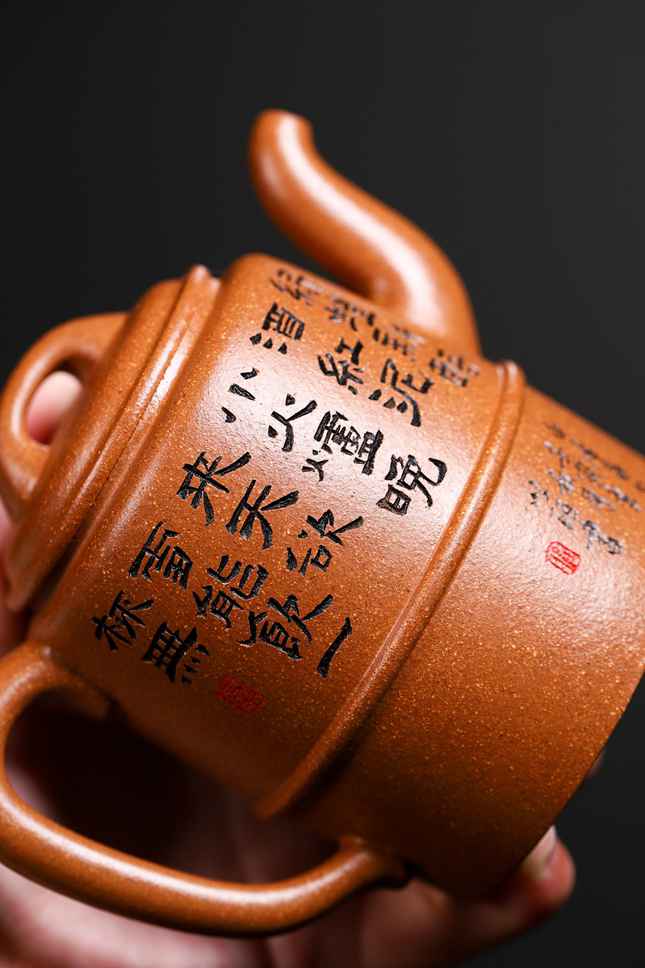 綠螘新醅
酒紅泥
小火爐晚
來天欲
雪能飲一
杯無